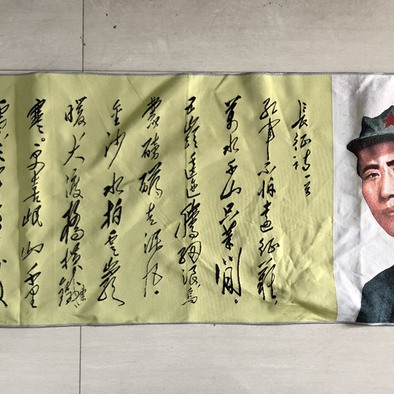 長征詩一首
紅軍不怕遠征難，
萬水千山只等閒。
五嶺逶迤騰細浪烏
蒙磅礴走泥丸。
金沙水拍雲崖
暖大渡橋橫鐵索
寒。更喜岷山千里
雪三軍過後